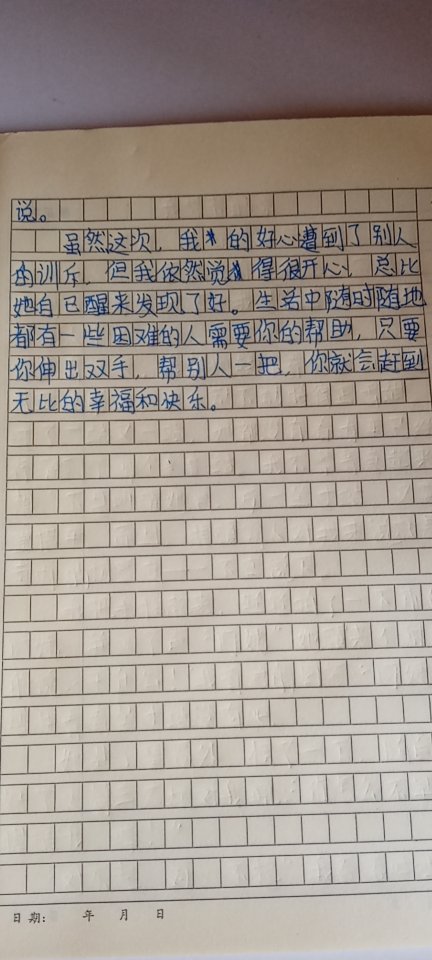 说。
虽然这次，我的好心遭到了别人
的训斥，但我依然觉得很开心，总比
她自己醒来发现了好。生活中随时随地
都有一些困难的人需要你的帮助，只要
你伸出双手，帮别人一把，你就会赶到
无比的幸福和快乐。
日期： 年 月 日